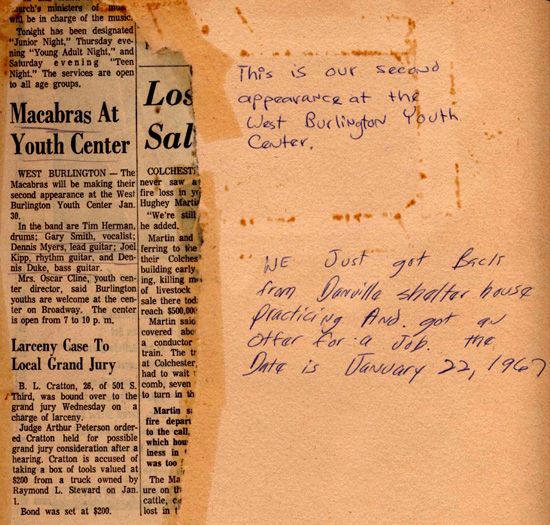 church's ministers of music
will be in charge of the music.
Tonight has been designated
"Junior Night," Thursday eve-
ning "Young Adult Night," and
Saturday evening "Teen
Night." The services are open
to all age groups.
Macabras At
Youth Center
WEST BURLINGTON — The
Macabras will be making their
second appearance at the West
Burlington Youth Center Jan.
30.
In the band are Tim Herman,
drums; Gary Smith, vocalist;
Dennis Myers, lead guitar; Joel
Kipp, rhythm guitar, and Den-
nis Duke, bass guitar.
Mrs. Oscar Cline, youth cen-
ter director, said Burlington
youths are welcome at the cen-
ter on Broadway. The center
is open from 7 to 10 p. m.
Larceny Case To
Local Grand Jury
B. L. Cratton, 26, of 501 S.
Third, was bound over to the
grand jury Wednesday on a
charge of larceny.
Judge Arthur Peterson order-
ed Cratton held for possible
grand jury consideration after a
hearing. Cratton is accused of
taking a box of tools valued at
$200 from a truck owned by
Raymond L. Steward on Jan.
1.
Bond was set at $200.
Los
Sal
COLCHESTE
never saw a
fire loss in
Hughey Marti
"We're still
he added.
Martin and
ferring to the
their Colches
building early
ing, killing m
of livestock
sale there tod
reach $500,000
Martin said
covered abo
a conductor
train. The tr
at Colchester,
had to wait
comb, seven
to turn in th
Martin s
fire depart
to the call,
which hou
iness in
was too
The Ma
ure on th
cattle, c
lost in t
This is our second
appearance at the
West Burlington Youth
Center.
WE Just got Back
from Danville shelter house
practicing And. got an
offer for a Job. the
Date is January 22, 1967